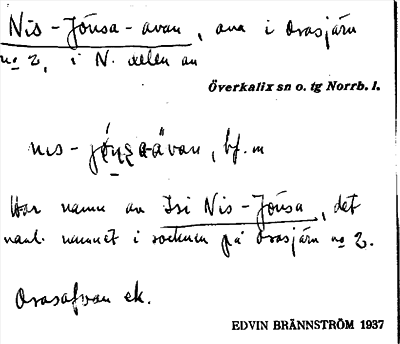 Nis-Jóusa-avan, ava i Orasjärn
no 2, i N. delen av
Överkalix sn o. tg Norrb. l.
nis- , bf. m
Har namn av Isi Nis-Jóusa, det
namnet i socknen på Orasjärn no 2.
Orasafvan ek.
EDVIN BRÄNNSTRÖM 1937